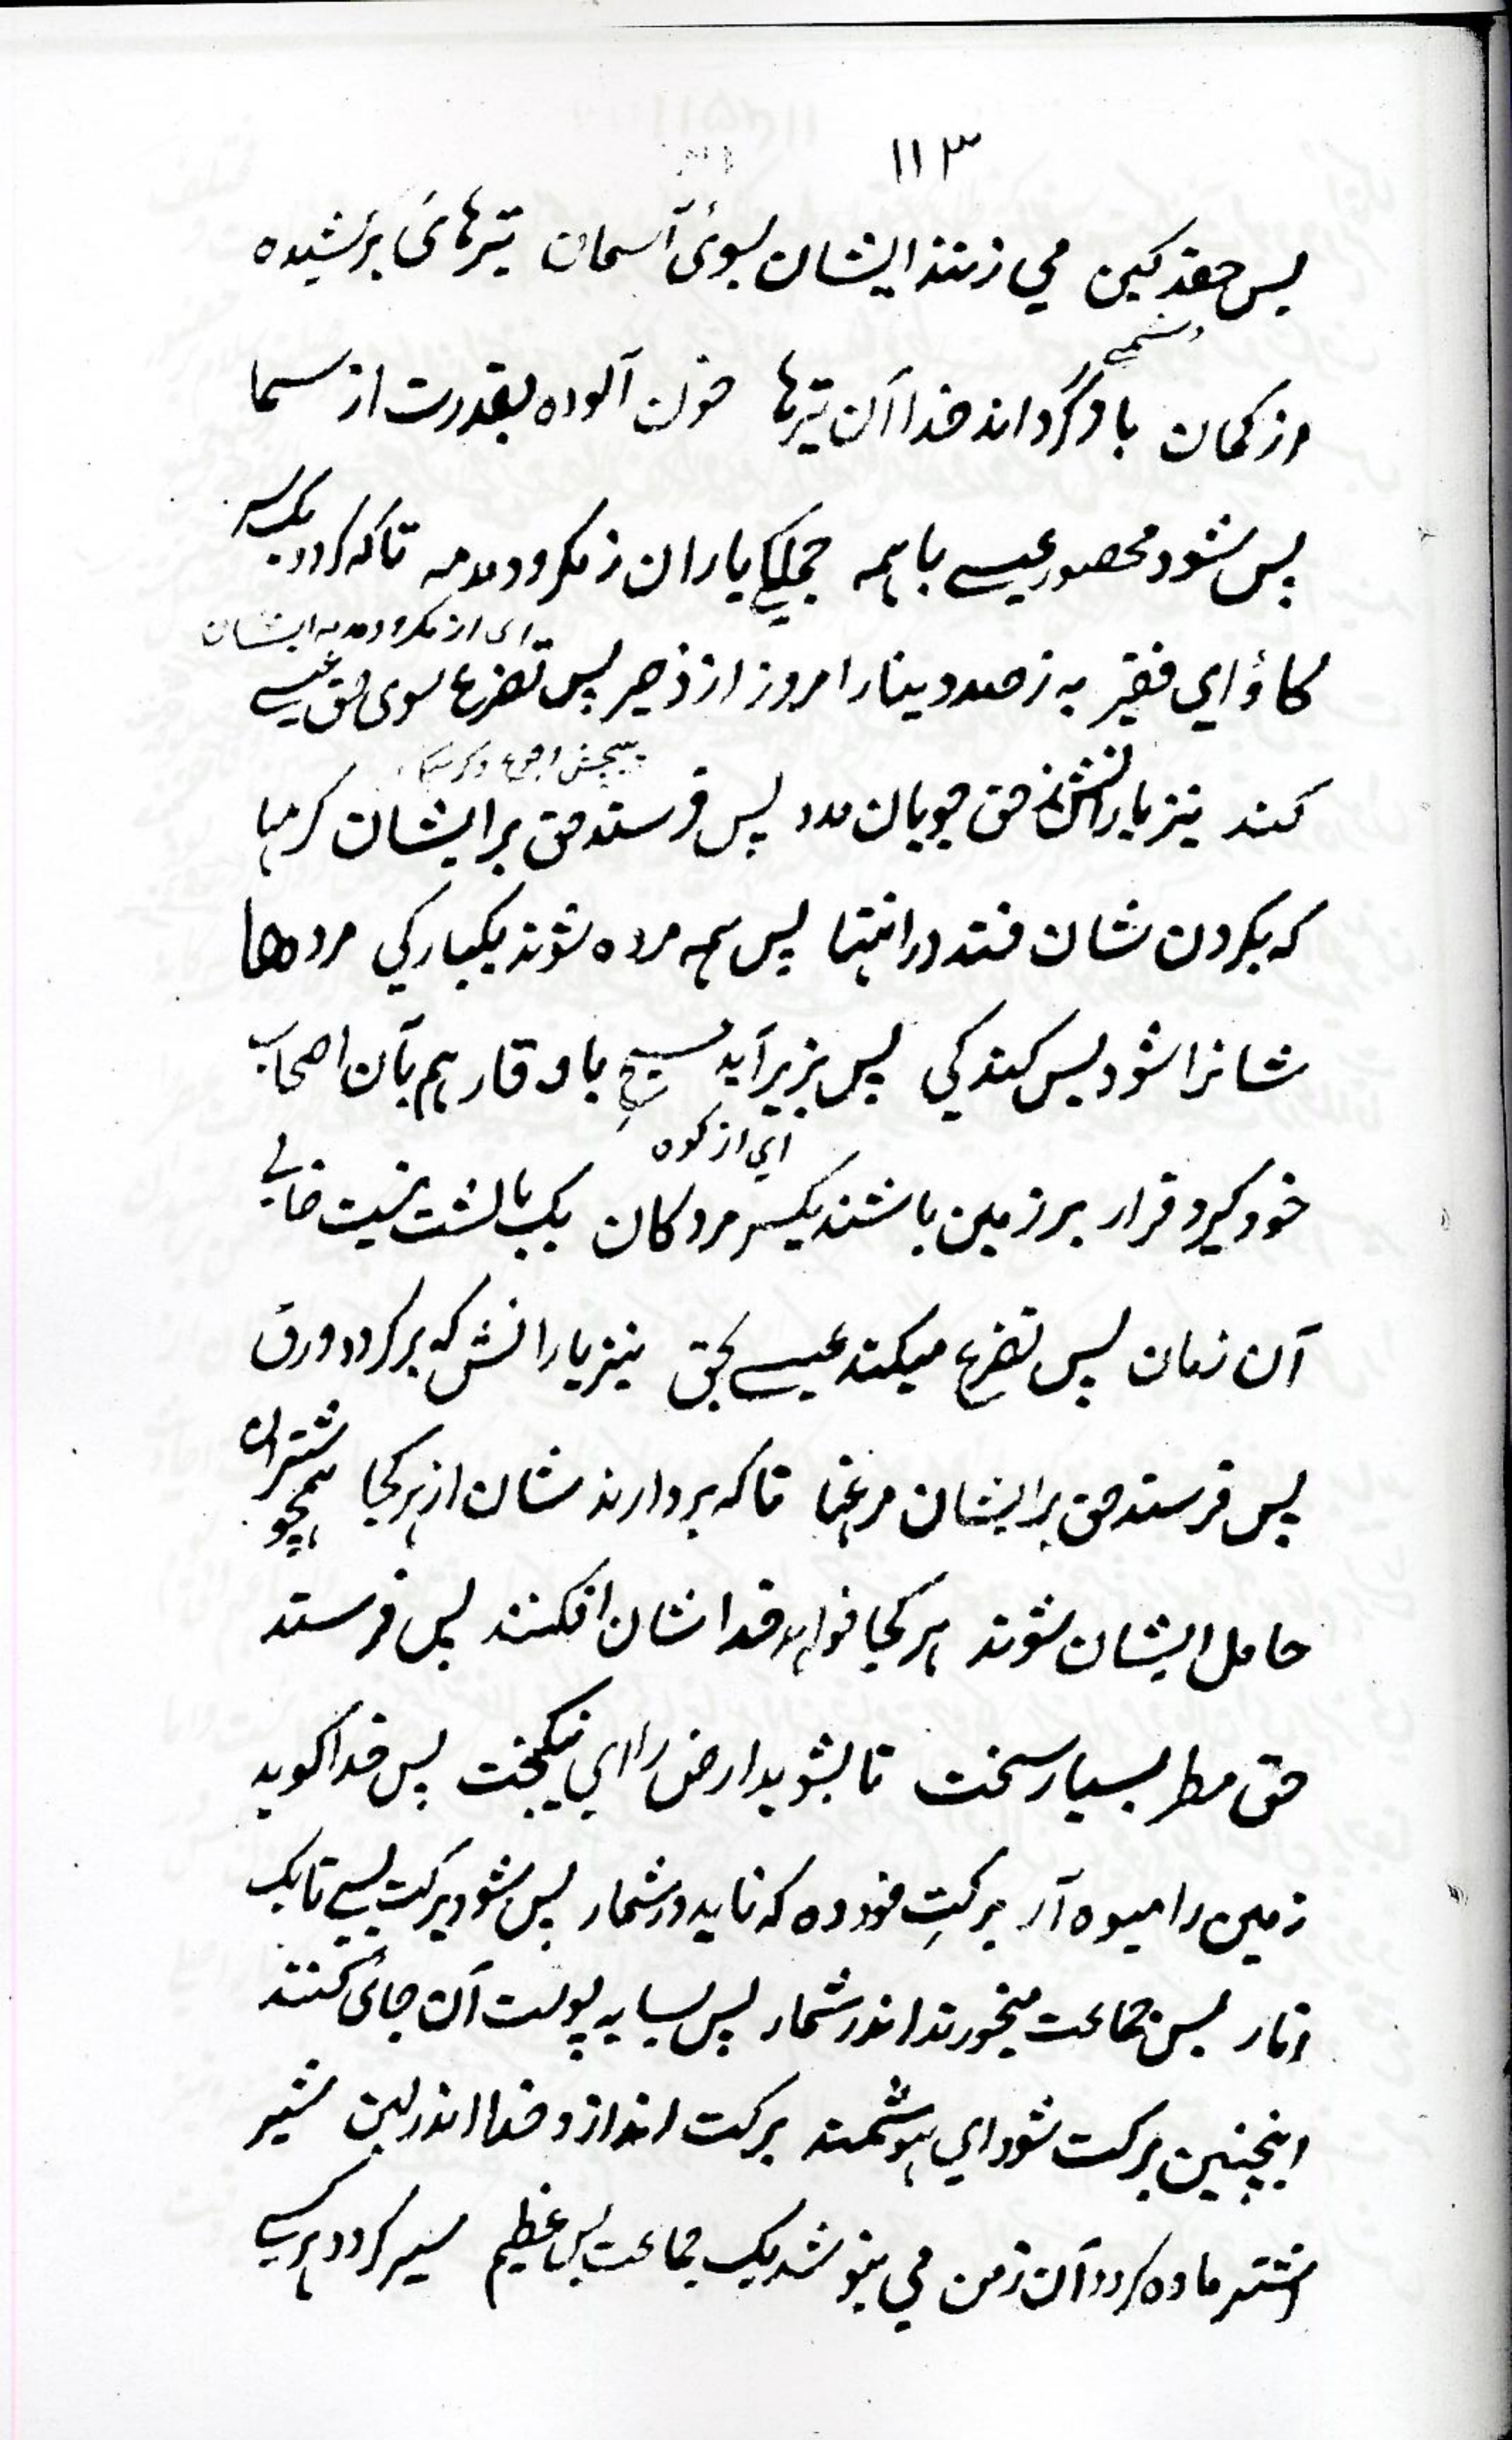 ۱۱۳
پس حقدکین می زنند ایشان بسوئ آسمان تیرهائ برکشیده
دشمنی
از کمان باز گرداند خدا آن تیرها خون آلوده بقدرت از سما
پس شود محصور عیسے باهمه جملگی یاران ز مکر ودمدمه تاکه گردد یک سر
ای از مکر و دمدمه ایشان
گاؤ ای فقیر به ز صد دینار امروز از ذحیر پس تضرع سوی حق عیسے
پیچش
کند نیز یارانش ز حق جویان مدد پس فرستد حق بر ایشان کرمها
که بگردن شان فتد در انتها پس همه مرده شوند یکبارگی مردها
شانرا شود پس کندگی پس بزیر آید مسیح با وقار هم بآن اصحاب
ای از کوه
خود گیرد قرار بر زمین باشند یکسر مردگان یک بالشت نیست خالی
آن زمان پس تضرع میکند عیسے بحق نیز یارانش که برگردد ورق
پس فرستد حق بر ایشان مرغها تاکه بردارند شان از هر کجا همچو شتران
حامل ایشان شوند هر کجا خواهد خدا شان افکنند پس فرستد
حق مطر بسیار سخت تا بشوید ارض را ای نیکبخت پس خدا گوید
زمین را میوه آر برکتِ خود ده که ناید در شمار پس شود برکت بسے تا یک
انار بس جماعت میخورند اندر شمار پس بسایه پوست آن جائ کنند
اینچنین برکت شود ای هوشمند برکت اندازد خدا اندر لبن شیر
اشتر ماده گردد آن زمن می بنوشد یک جماعت بس عظیم سیر گردد هر کسے